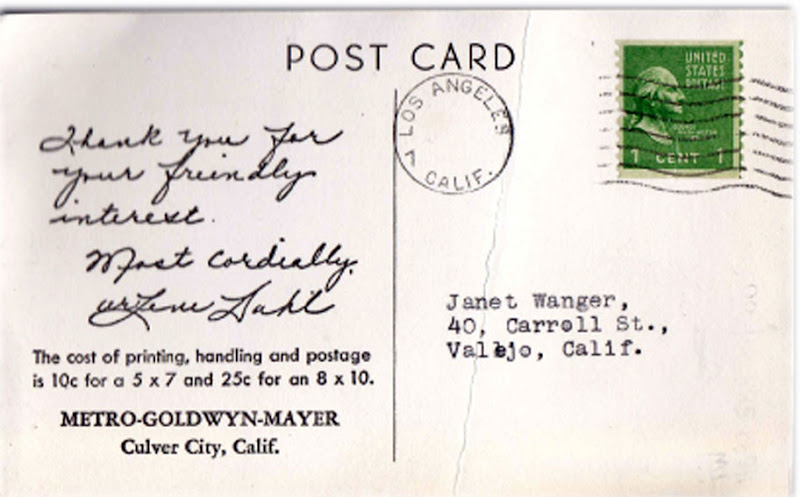 POST CARD
Thank you for
your friendly
interest.
Most Cordially,
Arlene Dahl
The cost of printing, handling and postage
is 10c for a 5 x 7 and 25c for an 8 x 10.
METRO-GOLDWYN-MAYER
Culver City, Calif.
LOS ANGELES
7
CALIF.
UNITED
STATES
POSTAGE
1 CENT 1
Janet Wanger,
40, Carroll St.,
Vallejo, Calif.